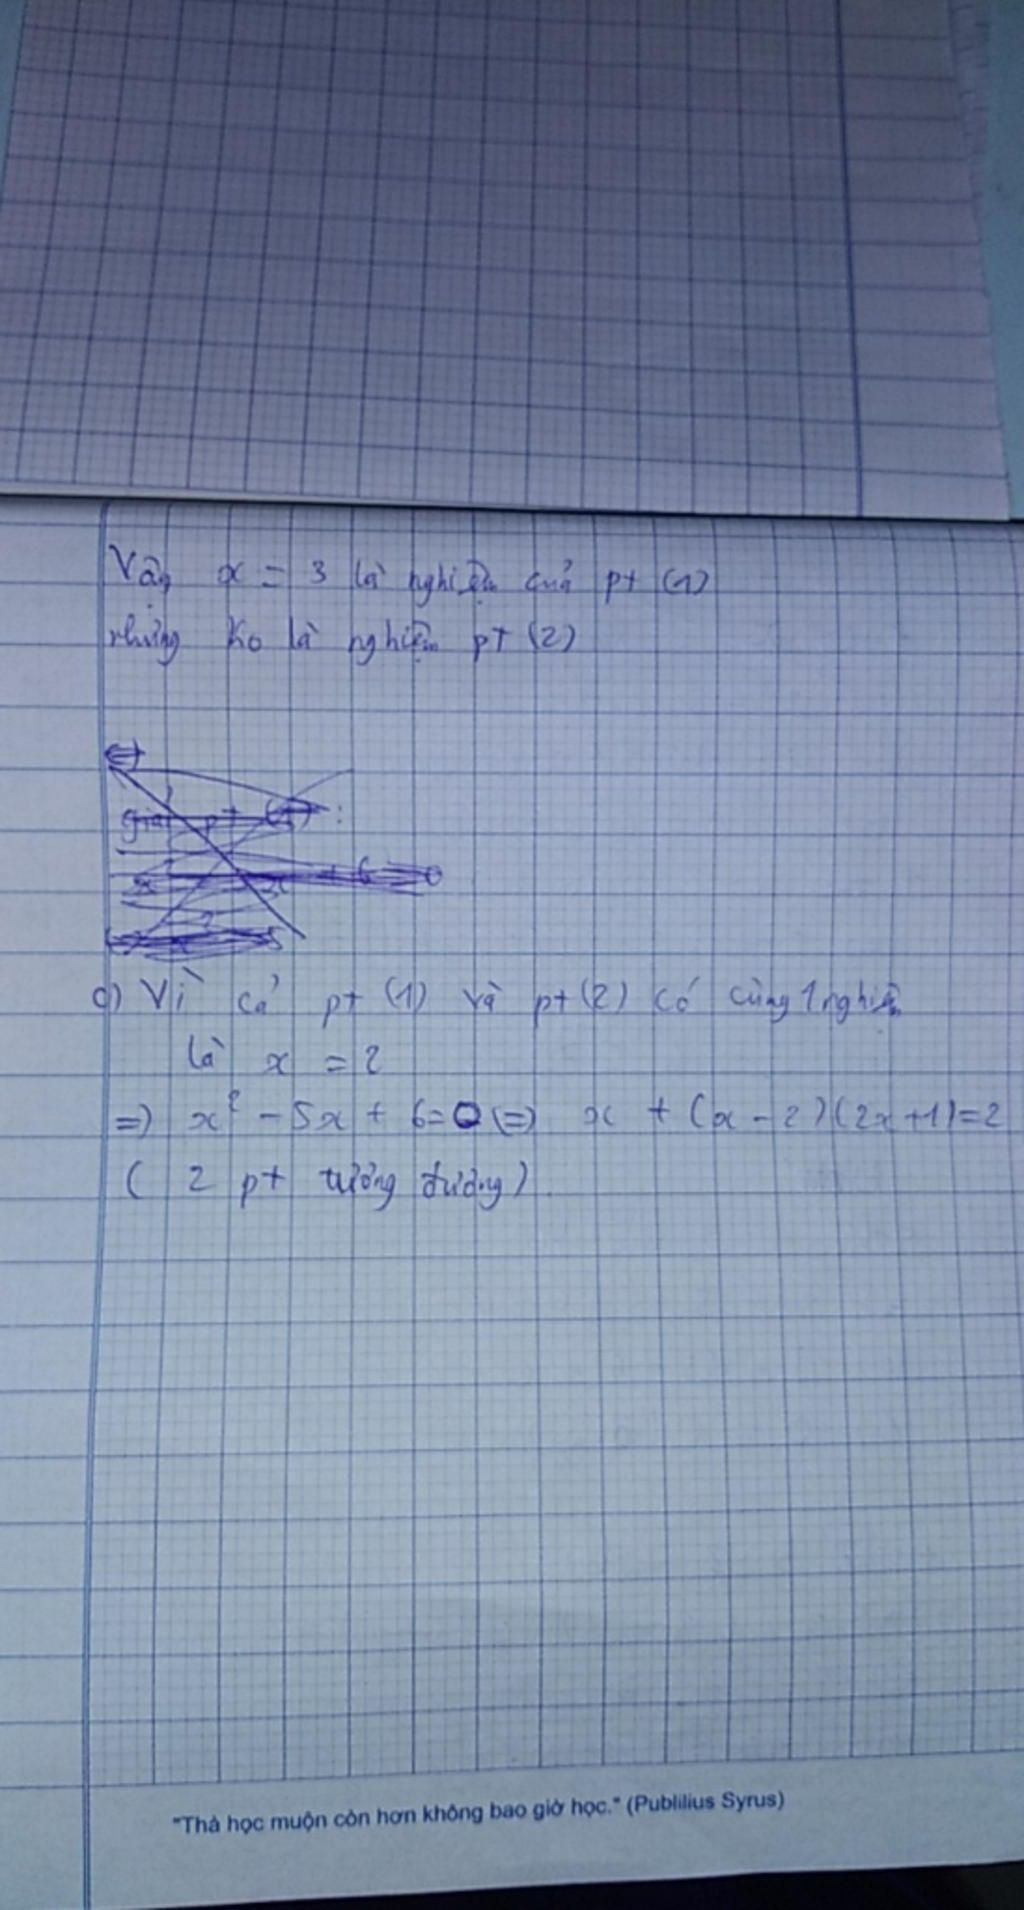 Vậy x = 3 là nghiệm của pt (1)
nhưng ko là nghiệm pt (2)
giải pt :
c) Vì cả pt (1) và pt (2) có cùng 1 nghiệm
là x = 2
=) x² - 5x + 6 = 0 (=) x + (x - 2)(2x + 1) = 2
( 2 pt tương đương ).
"Thà học muộn còn hơn không bao giờ học." (Publilius Syrus)